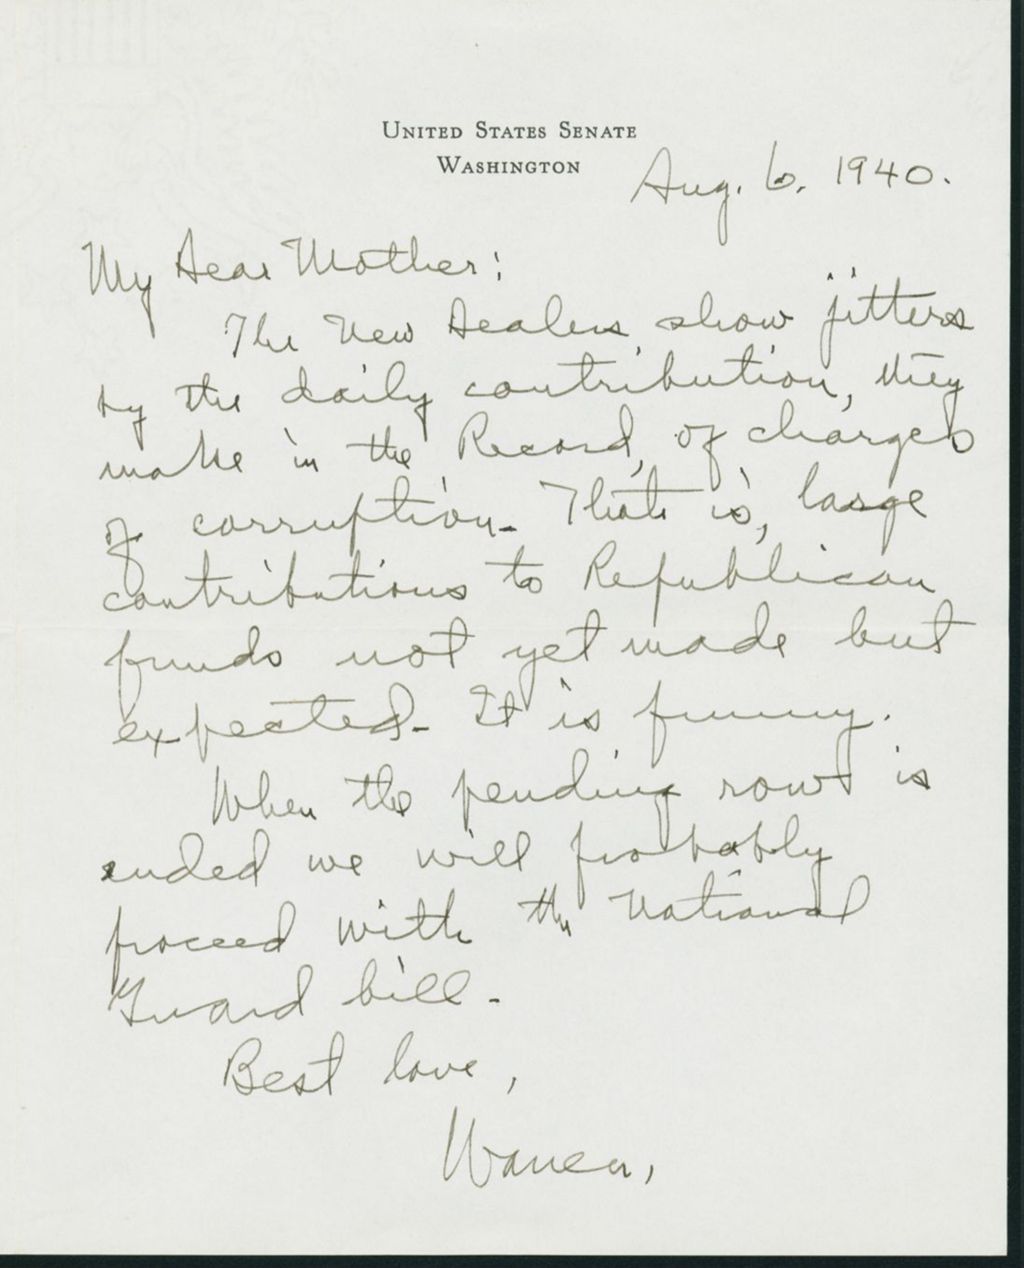 UNITED STATES SENATE
WASHINGTON
Aug. 6, 1940.
My Dear Mother:
The New Dealers show jitters
by the daily contribution, they
make in the Record, of charges
of corruption. That is, large
contributions to Republican
funds not yet made but
expected. It is funny.
When the pending row is
ended we will probably
proceed with the National
Guard bill.
Best love,
Warren,